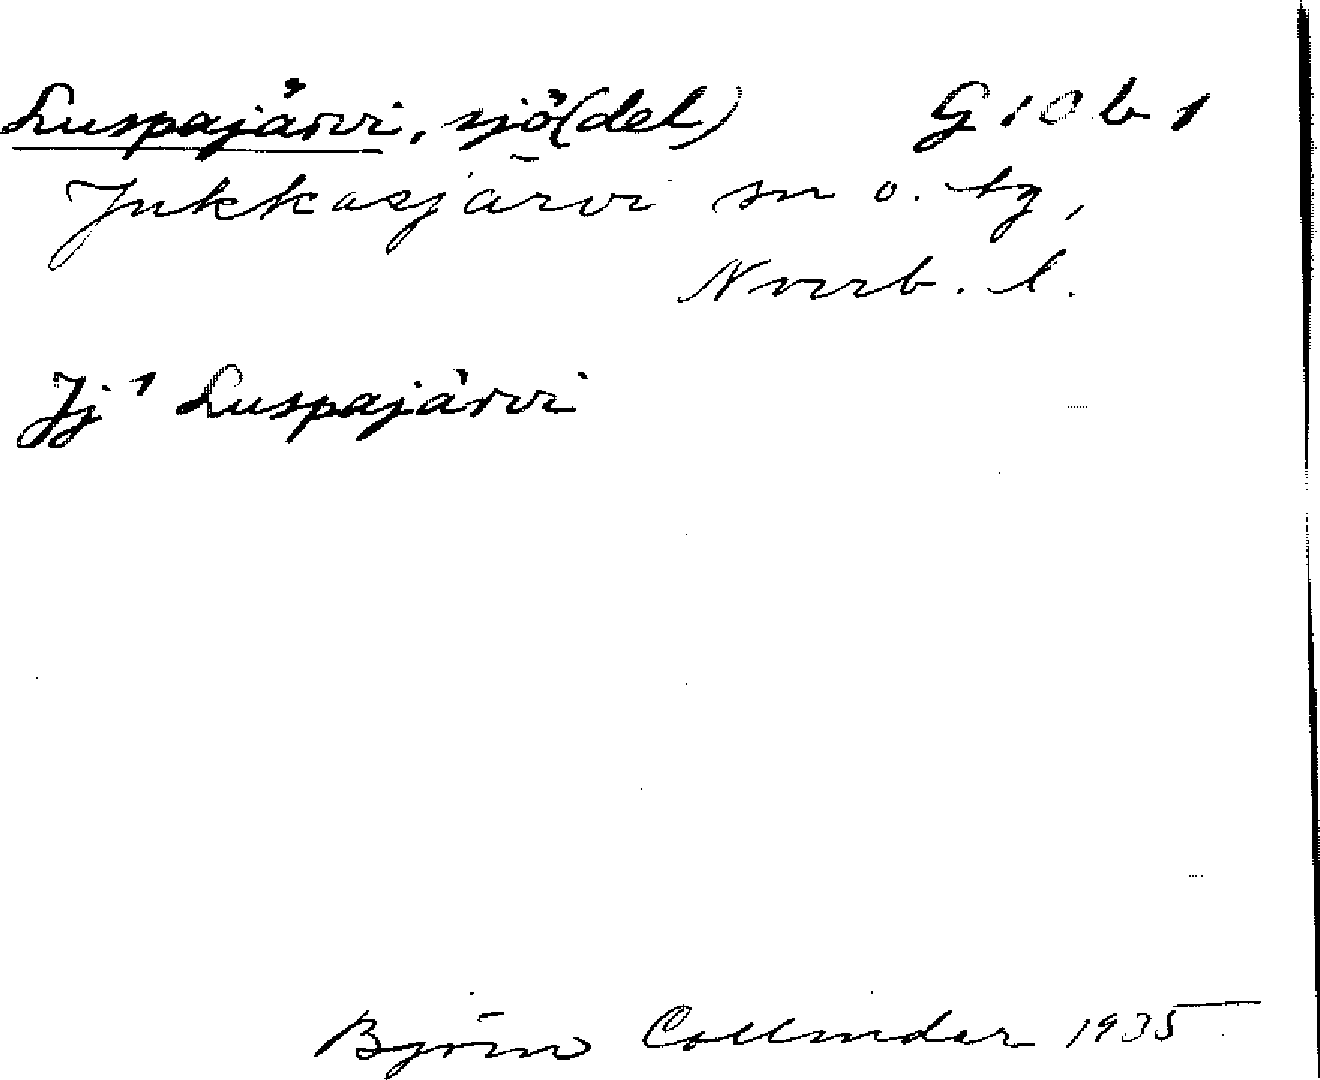 Luspajärvi, sjö(del) G 10 b 1
Jukkasjärvi sn o. tg,
Norrb. l.
Jj 1 Luspajärvi
Björn Collinder 1935